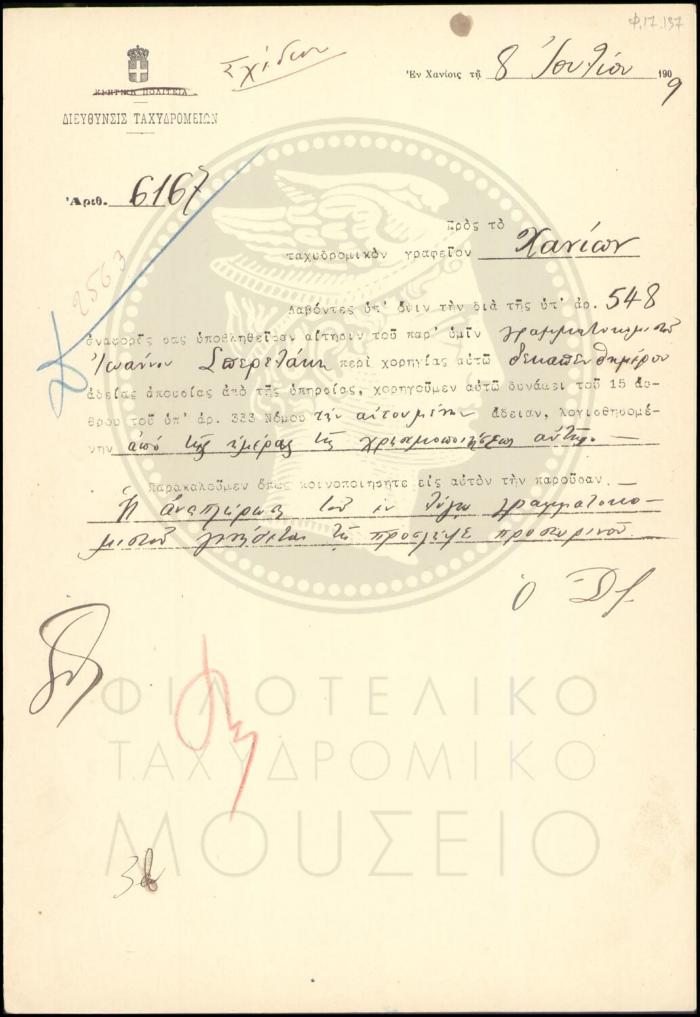 Φ.17.137
Σχέδιον
Ἐν Χανίοις τῇ 8 Ἰουλίου 1909
ΚΡΗΤΙΚΗ ΠΟΛΙΤΕΙΑ
ΔΙΕΥΘΥΝΣΙΣ ΤΑΧΥΔΡΟΜΕΙΩΝ
Ἀριθ. 6167
2563
Πρὸς τὸ
ταχυδρομικὸν γραφεῖον Χανίων
Λαβόντες ὑπ' ὄψιν τὴν διὰ τῆς ὑπ' ἀρ. 548
ἀναφορᾶς σας ὑποβληθεῖσαν αἴτησιν τοῦ παρ' ὑμῖν γραμματοκομιστοῦ
Ἰωάννου περὶ χορηγίας αὐτῷ δεκαπενθημέρου
ἀδείας ἀπουσίας ἀπὸ τῆς ὑπηρσίας, χορηγοῦμεν αὐτῷ δυνάμει τοῦ 15 ἄρ-
θρου τοῦ ὑπ' ἀρ. 333 Νόμου τὴν αἰτουμένην ἄδειαν, λογισθησομέ-
νην ἀπὸ τῆς ἡμέρας τῆς χρησιμοποιήσεως αὐτῆς. —
Παρακαλοῦμεν ὅπως κοινοποιήσητε εἰς αὐτὸν τὴν παροῦσαν. —
Ἡ ἀναπλήρωσις τοῦ ἐν λόγῳ γραμματοκο-
μιστοῦ γενήσεται τῇ προσλήψει προσωρινοῦ.
Ὁ Δ
ΦΙΛΟΤΕΛΙΚΟ
ΤΑΧΥΔΡΟΜΙΚΟ
ΜΟΥΣΕΙΟ